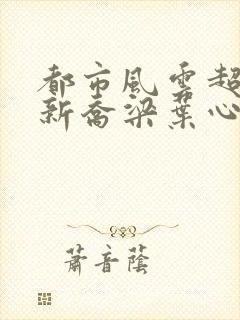 都市風雲超
新喬梁葉心
蕭音蔭